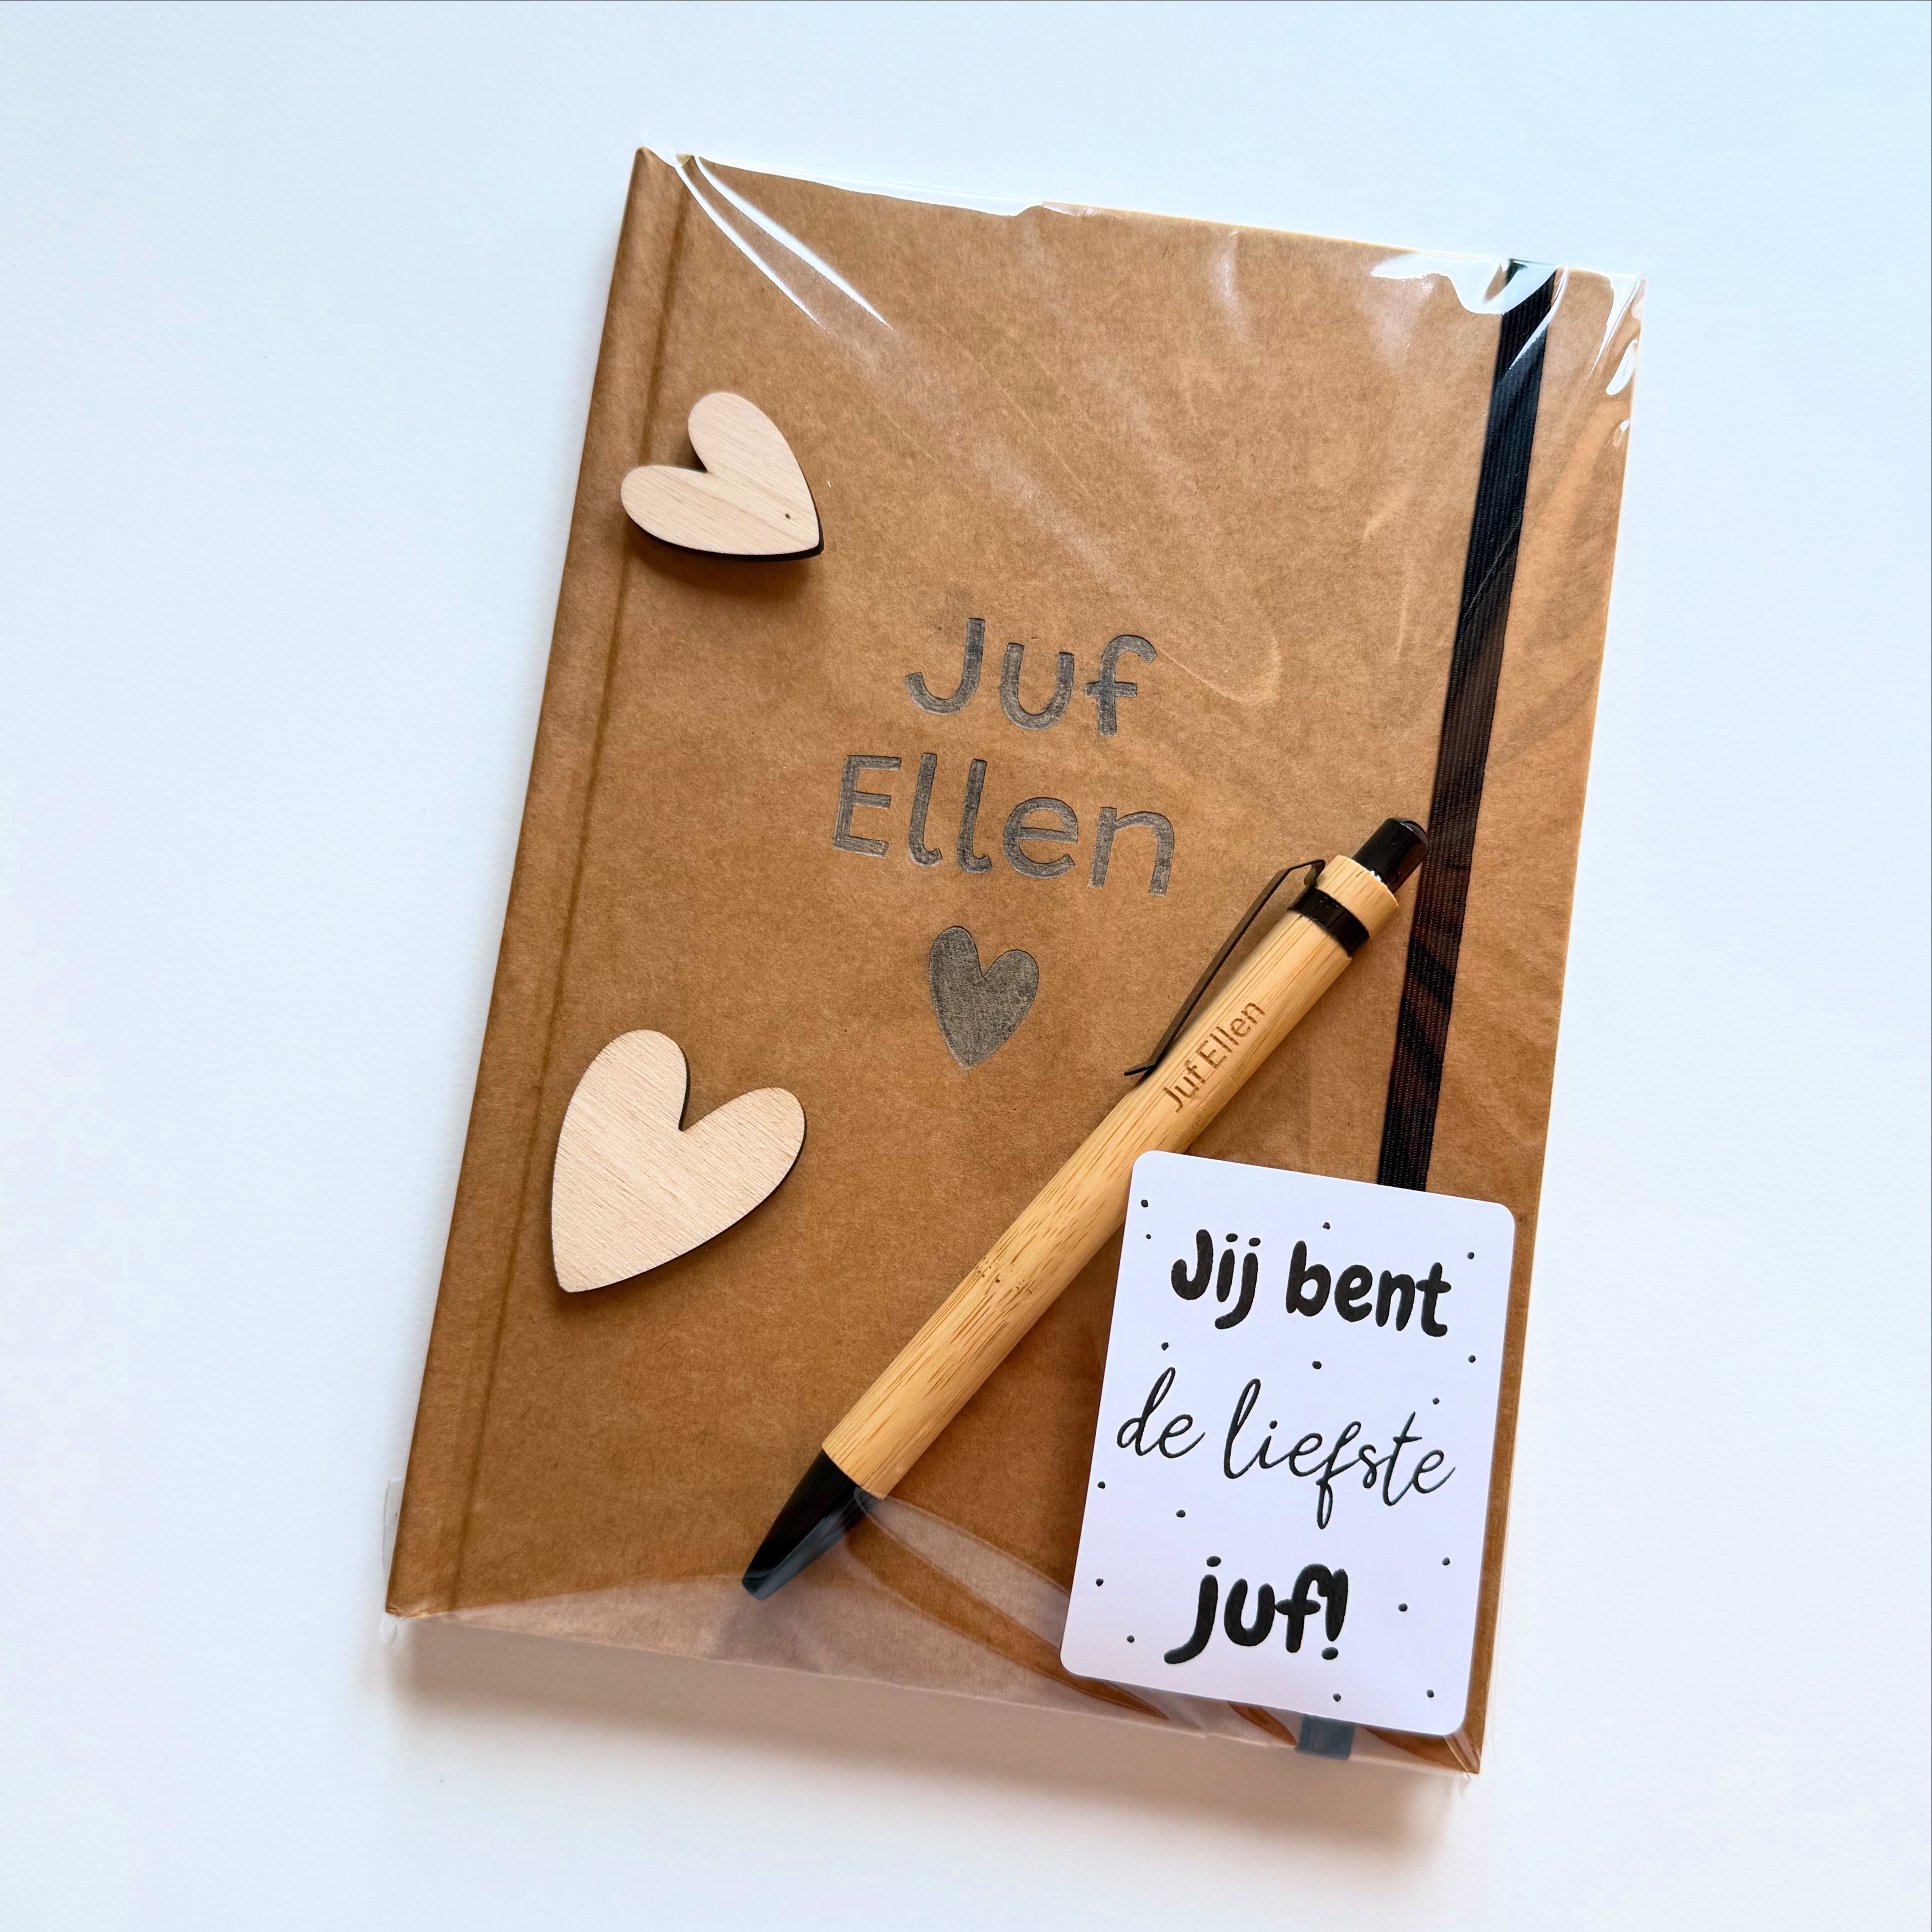 Juf
Ellen
Juf Ellen
Jij bent
de liefste
juf!